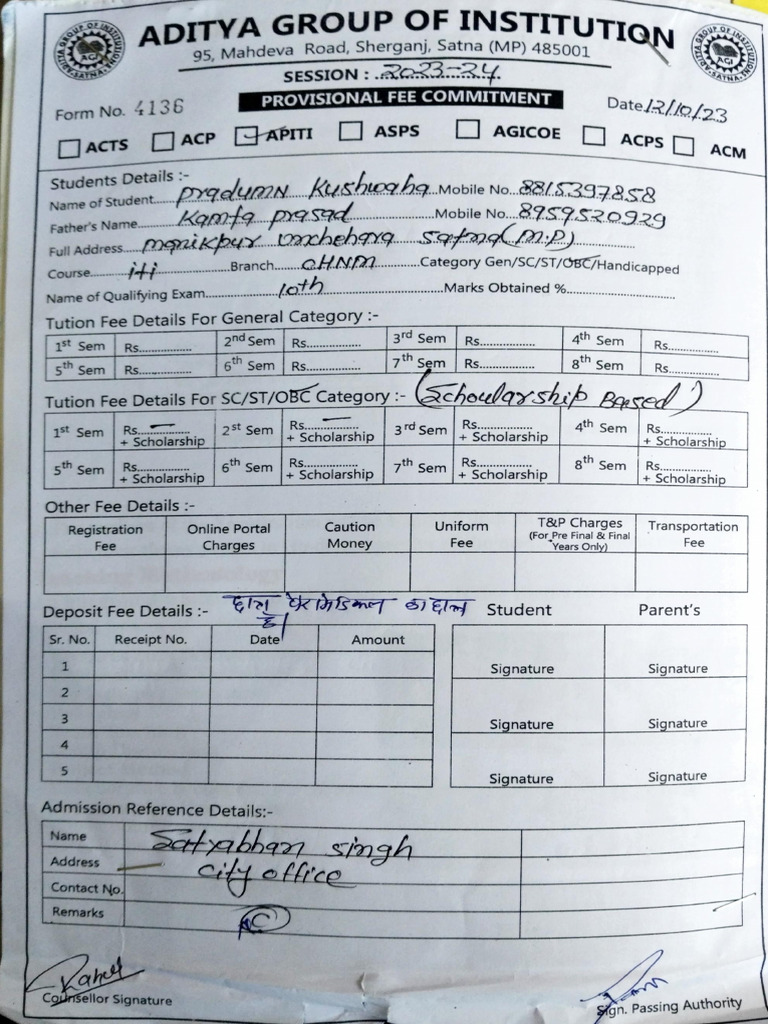 ADITYA GROUP OF INSTITUTION
95, Mahdeva Road, Sherganj, Satna (MP) 485001
SESSION : 2023-24
PROVISIONAL FEE COMMITMENT
Form No. 4136 Date 12/10/23
ACTS ACP APITI ASPS AGICOE ACPS ACM
Students Details :-
Name of Student pradumn Kushwaha Mobile No. 8815397858
Father's Name Kamta prasad Mobile No. 8959520929
Full Address manikpur Unchehara satna (M.P)
Course iti Branch OHNM Category Gen/SC/ST/OBC/Handicapped
Name of Qualifying Exam 10th Marks Obtained %
Tution Fee Details For General Category :-
1st Sem Rs. 2nd Sem Rs. 3rd Sem Rs. 4th Sem Rs.
5th Sem Rs. 6th Sem Rs. 7th Sem Rs. 8th Sem Rs.
Tution Fee Details For SC/ST/OBC Category :- (Schoularship Based)
1st Sem Rs. — + Scholarship 2st Sem Rs. — + Scholarship 3rd Sem Rs. + Scholarship 4th Sem Rs. + Scholarship
5th Sem Rs. + Scholarship 6th Sem Rs. + Scholarship 7th Sem Rs. + Scholarship 8th Sem Rs. + Scholarship
Other Fee Details :-
Registration Fee Online Portal Charges Caution Money Uniform Fee T&P Charges (For Pre Final & Final Years Only) Transportation Fee
Deposit Fee Details :- पैरामेडिकल का छात्र है। Student Parent's
Sr. No. Receipt No. Date Amount
1 Signature Signature
2
3 Signature Signature
4
5 Signature Signature
Admission Reference Details:-
Name Satyabhan singh
Address city office
Contact No.
Remarks
Rahul
Counsellor Signature Sign. Passing Authority